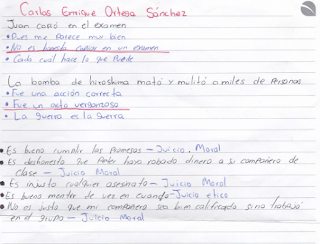 Carlos Enrique Ortega Sánchez
Juan copió en el examen
• Pues me parece muy bien
• No es honesto copiar en un examen
• Cada cual hace lo que puede
La bomba de hiroshima mató y mutiló a miles de personas
• Fue una acción correcta
• Fue un acto vergonzoso
• La guerra es la guerra
• Es bueno cumplir las promesas – Juicio Moral
• Es deshonesto que Peter haya robado dinero a su compañero de
clase – Juicio Moral
• Es injusto cualquier asesinato – Juicio Moral
• Es bueno mentir de vez en cuando – Juicio ético
• No es justo que mi compañero sea bien calificado si no trabajó
en el grupo – Juicio Moral